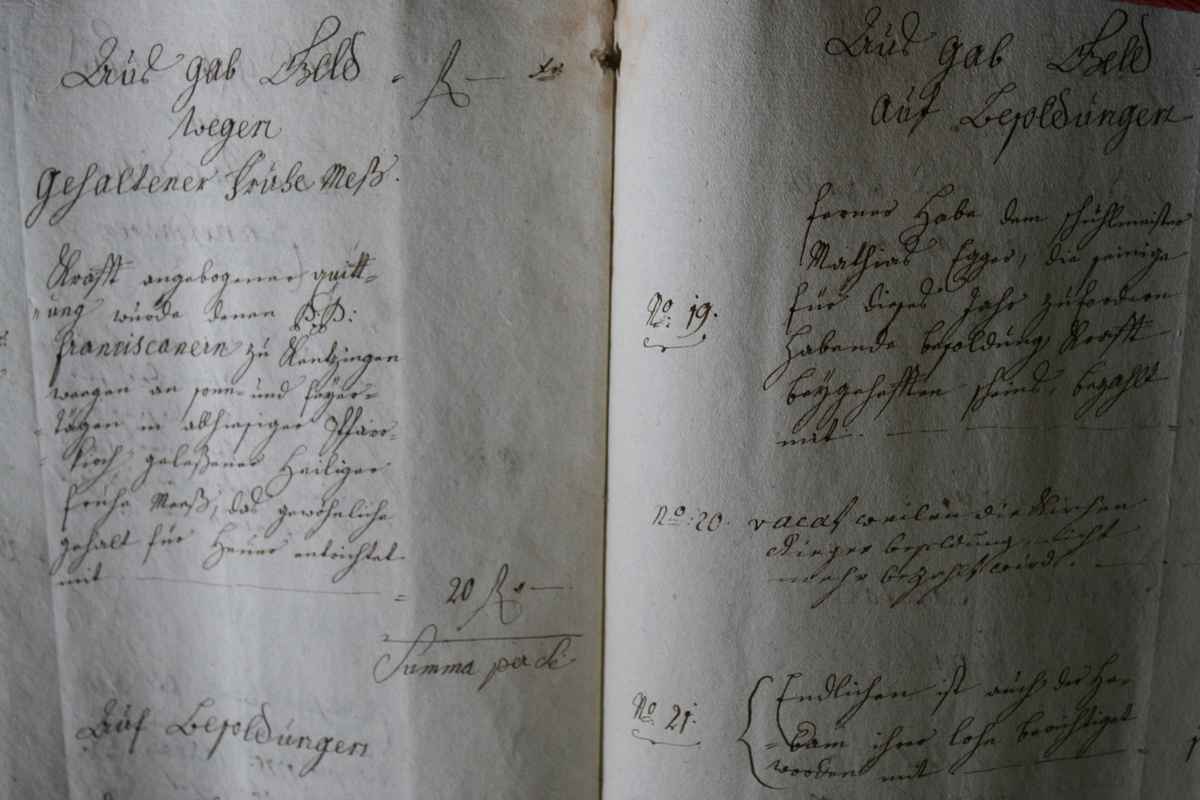 Aus gab Geld
wegen
Gehaltener Frühe Meß.
Krafft angebogener quitt-
ung wurde denen P: P:
Franciscanern zu Kentzingen
wegen an sonn- und feyer-
tägen in alhiesiger Pfarr-
kirch gelesener Heiliger
Frühe Meeß, das gewöhnliche
gehalt für Heuer entrichtet
mit
20
Summa per se
Auf Besoldungen
Aus gab Geld
auf Besoldungen
Ferner Habe dem schuhlmeister
Mathias Egger, die seinige
No: 19. für dieses Jahr zufordern
Habende besoldung Krafft
beygehefften scheins, bezahlt
mit
No: 20. vacat weilen die Kirchen
besoldung nicht
mehr bezahlt wird.
No: 21. Endlichen ist auch der He-
bam ihrer lohn berichtiget
worden mit